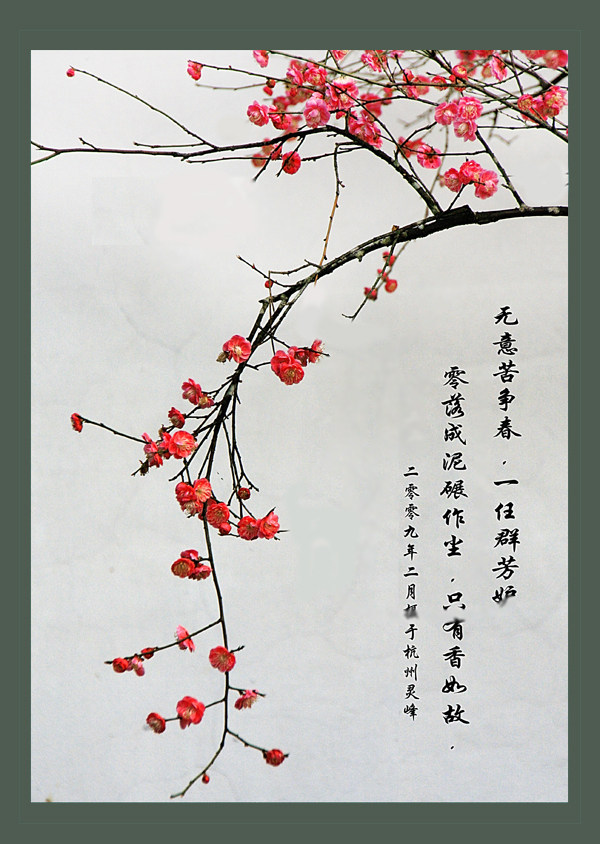 无意苦争春，一任群芳妒
零落成泥碾作尘，只有香如故，
二零零九年二月于杭州灵峰